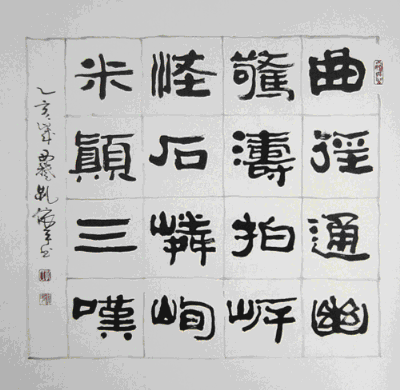 曲徑通幽
驚濤拍岸
怪石嶙峋
米顛三嘆
乙亥歲